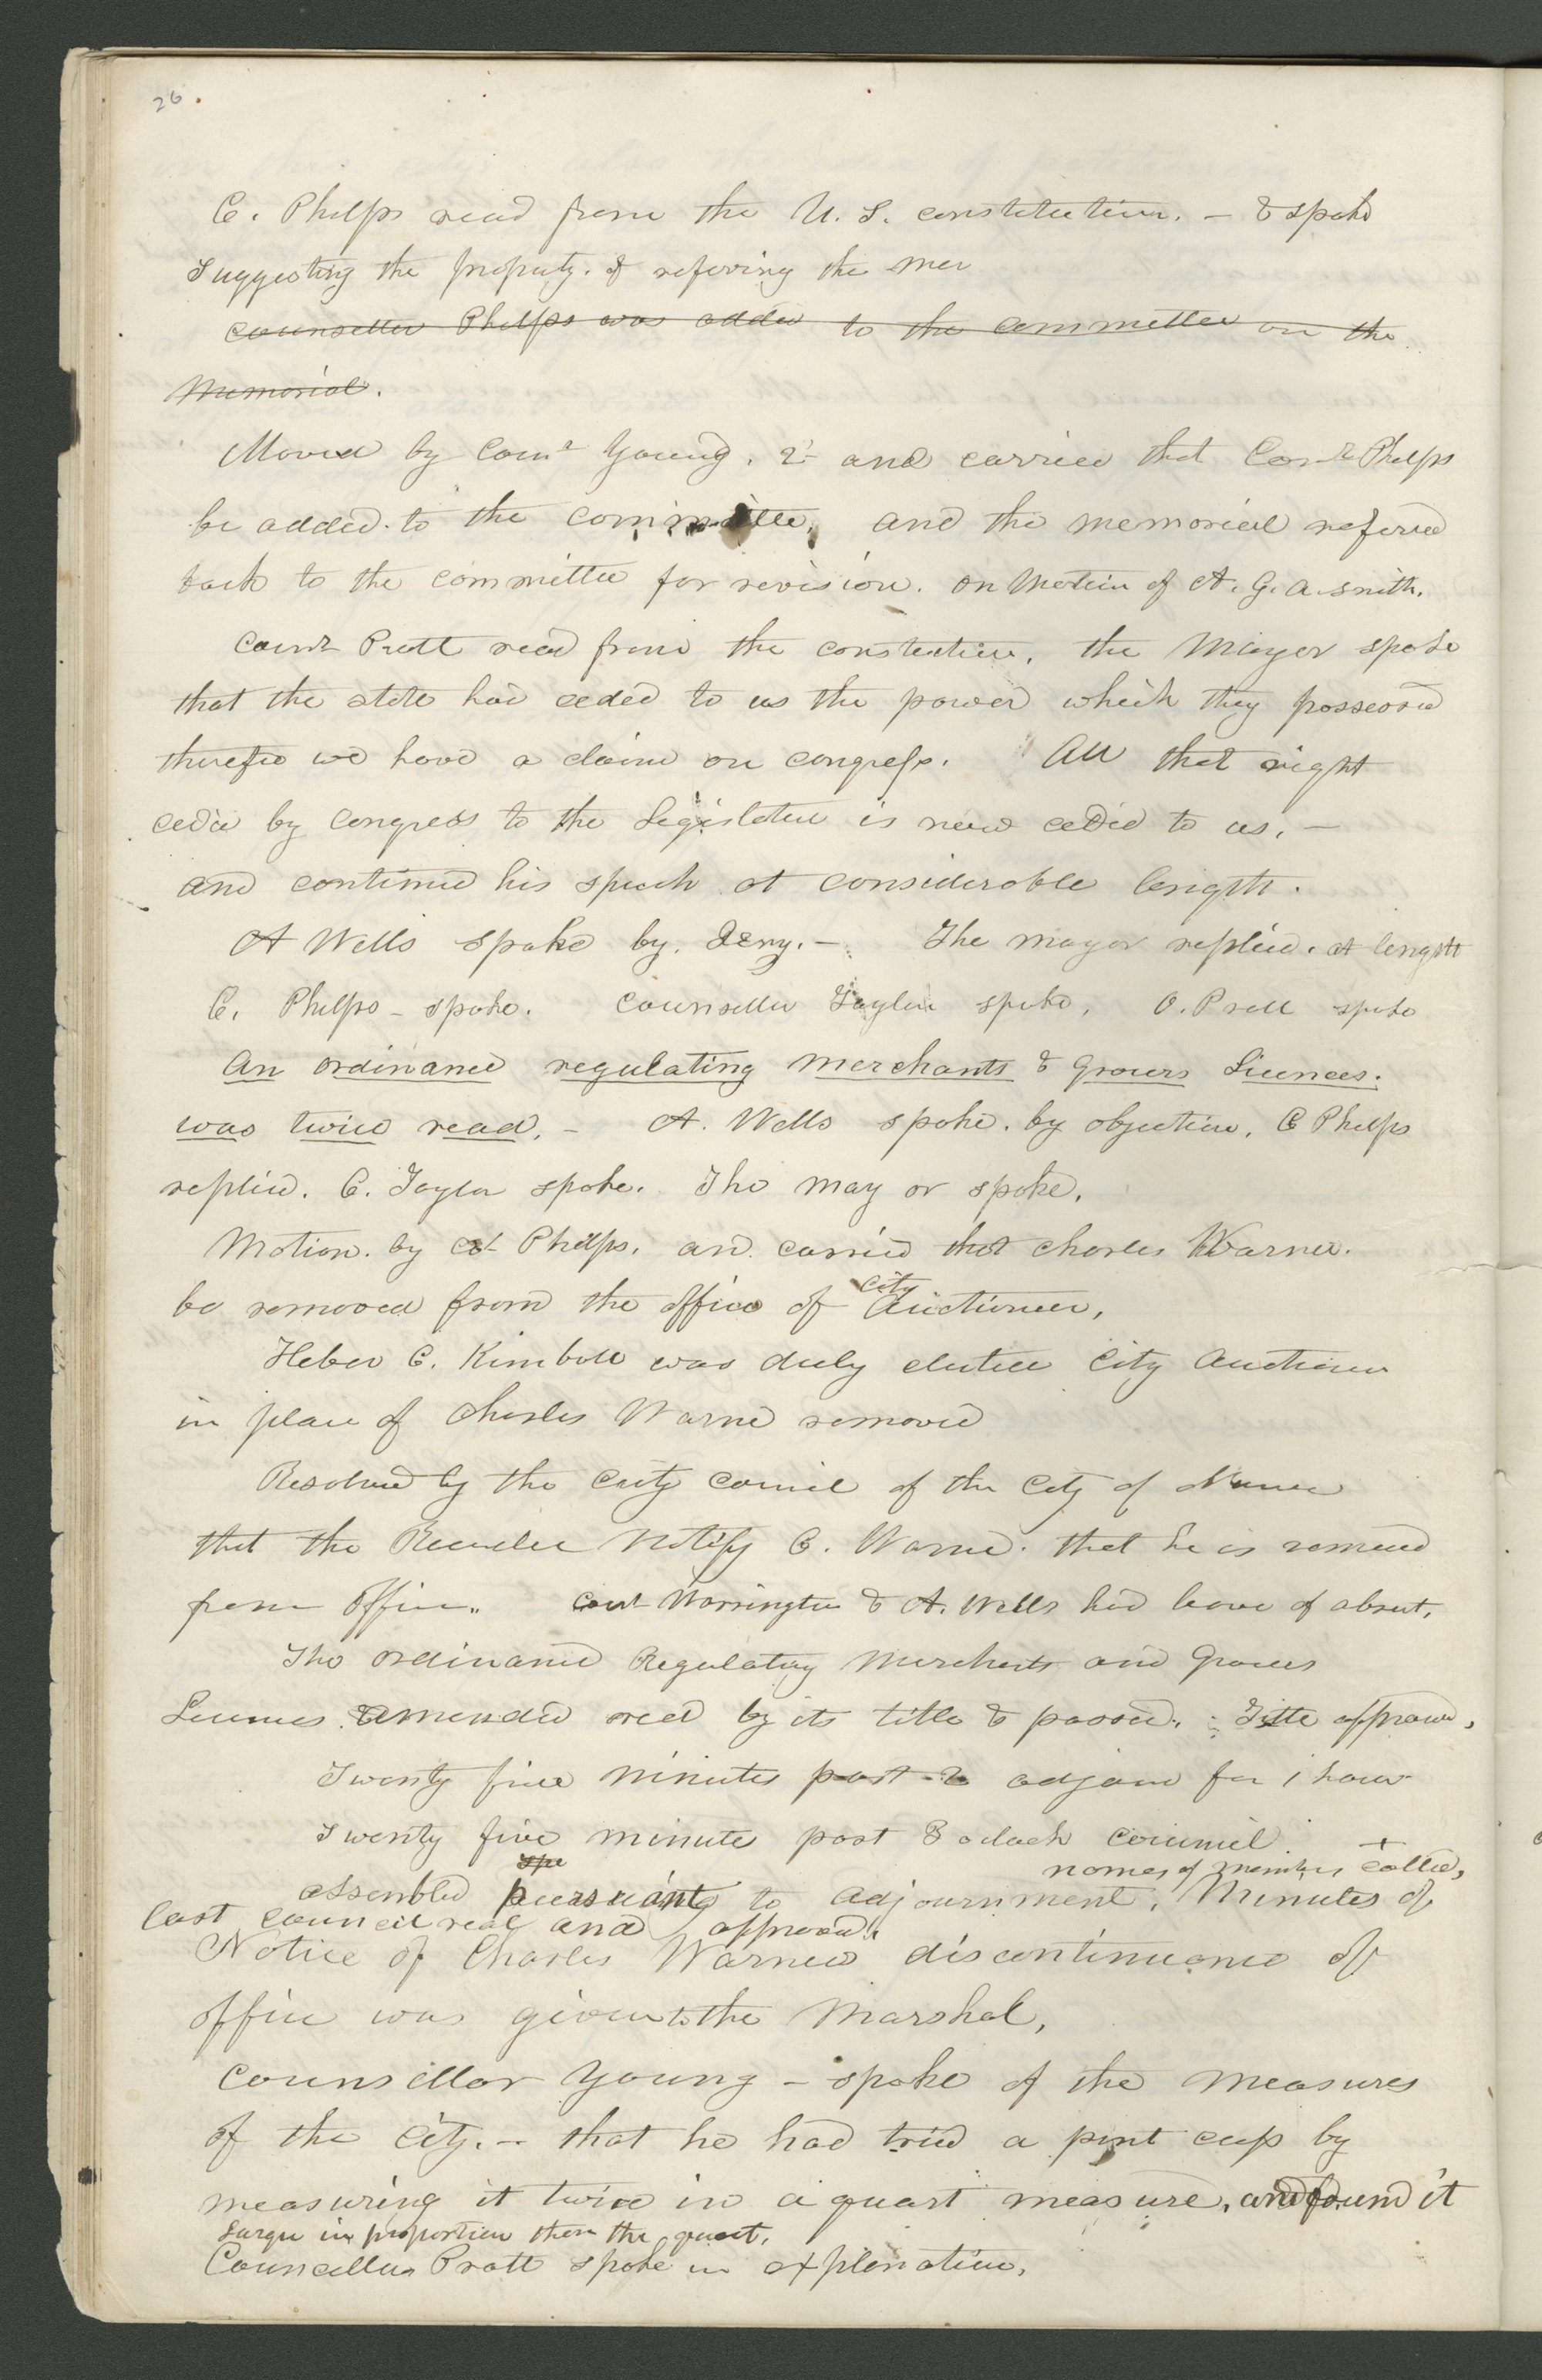 26.
C. Phelps read from the U. S. constitution. — & spoke
suggesting the propriety. of refering the mer
counsellor Phelps was added to the committee on the
Memorial.
Moved by Counr Young. 2d and carried that Counr Phelps
be added to the committee, and the memorial refered
back to the committee for revision. on motion of A. G. A. Smith.
Counr Pratt read from the constitution, the Mayor spoke
that the state had ceded to us the power which they possessed
therefore we have a claim on congress. All that right
ceded by Congress to the Legislature is now ceded to us, —
and continued his speech at considerable length.
A Wells spoke by. — The mayor replied. at length
C. Phelps – spoke. counsellor Taylor spoke, O. Pratt spoke
An ordinance regulating merchants & Grocers Licences.
was twice read, – A. Wells spoke. by objection, C Phelps
replied. C. Taylor spoke. The may or spoke.
Motion. by Phelps. and carried that Charles Warner.
be removed from the office of City Auctioneer,
Heber C. Kimball was duly elected City Auctioneer
in place of Charles Warner removed
Resolved by the City Council of the City of Nauvoo
that the Recorder notify C. Warner. that he is removed
from office.. Counr Warrington & A. Wells had leave of absent.
The ordinance Regulating Merchants and Grocers
Licences amended read by its title & passed. Title approved,
Twenty five minutes past 2 adjourd for 1 hour
Twenty five minute past 3 oclock council
spe names of members called,
assembled pursuant to adjournment. Minutes of
last council read and approved.
Notice of Charles Warner discontinuance of
office was given to the Marshal,
counsillor Young – spoke of the measures
of the City. – that he had tried a pint cup by
measuring it twice in a quart measure, and found it
larger in proportion then the quart.
Councillor Pratt spoke in explanation.